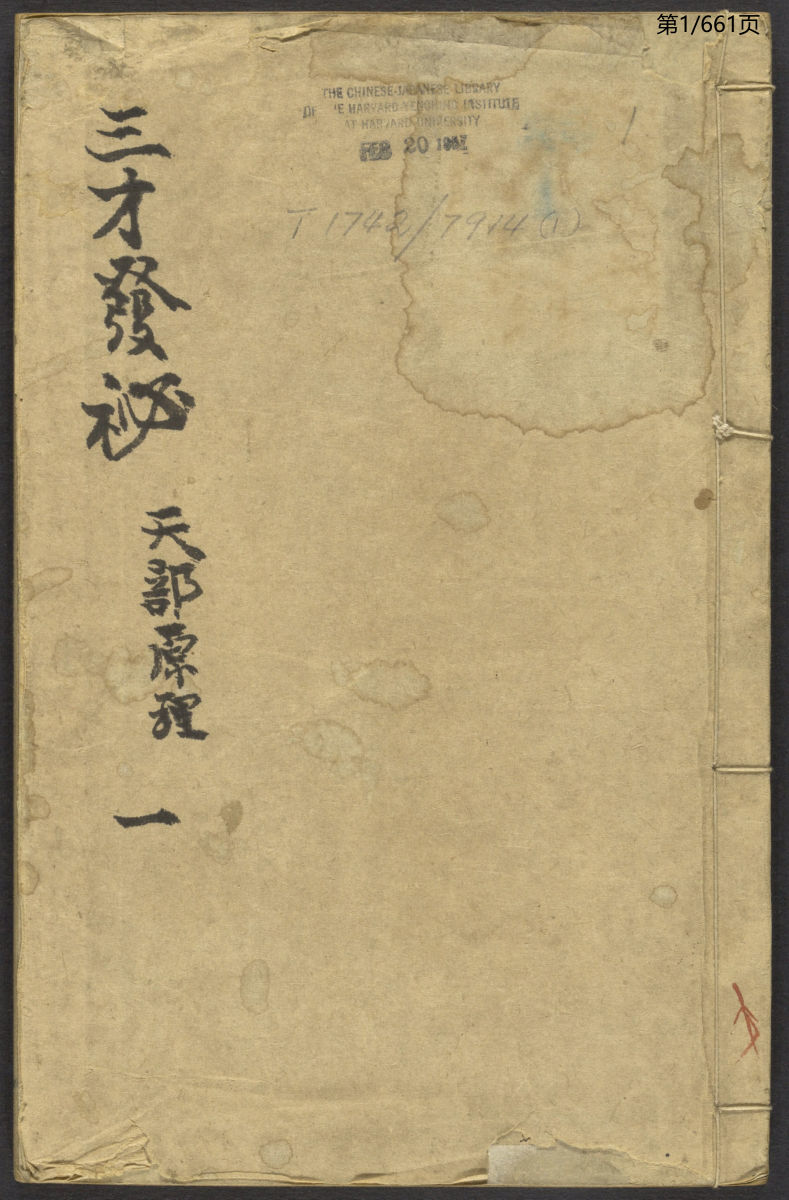 第1/661页
THE CHINESE-JAPANESE LIBRARY
OF THE HARVARD-YENCHING INSTITUTE
AT HARVARD UNIVERSITY
FEB 20
1
T 1742/7914 (1)
三才發祕
天部原理
一